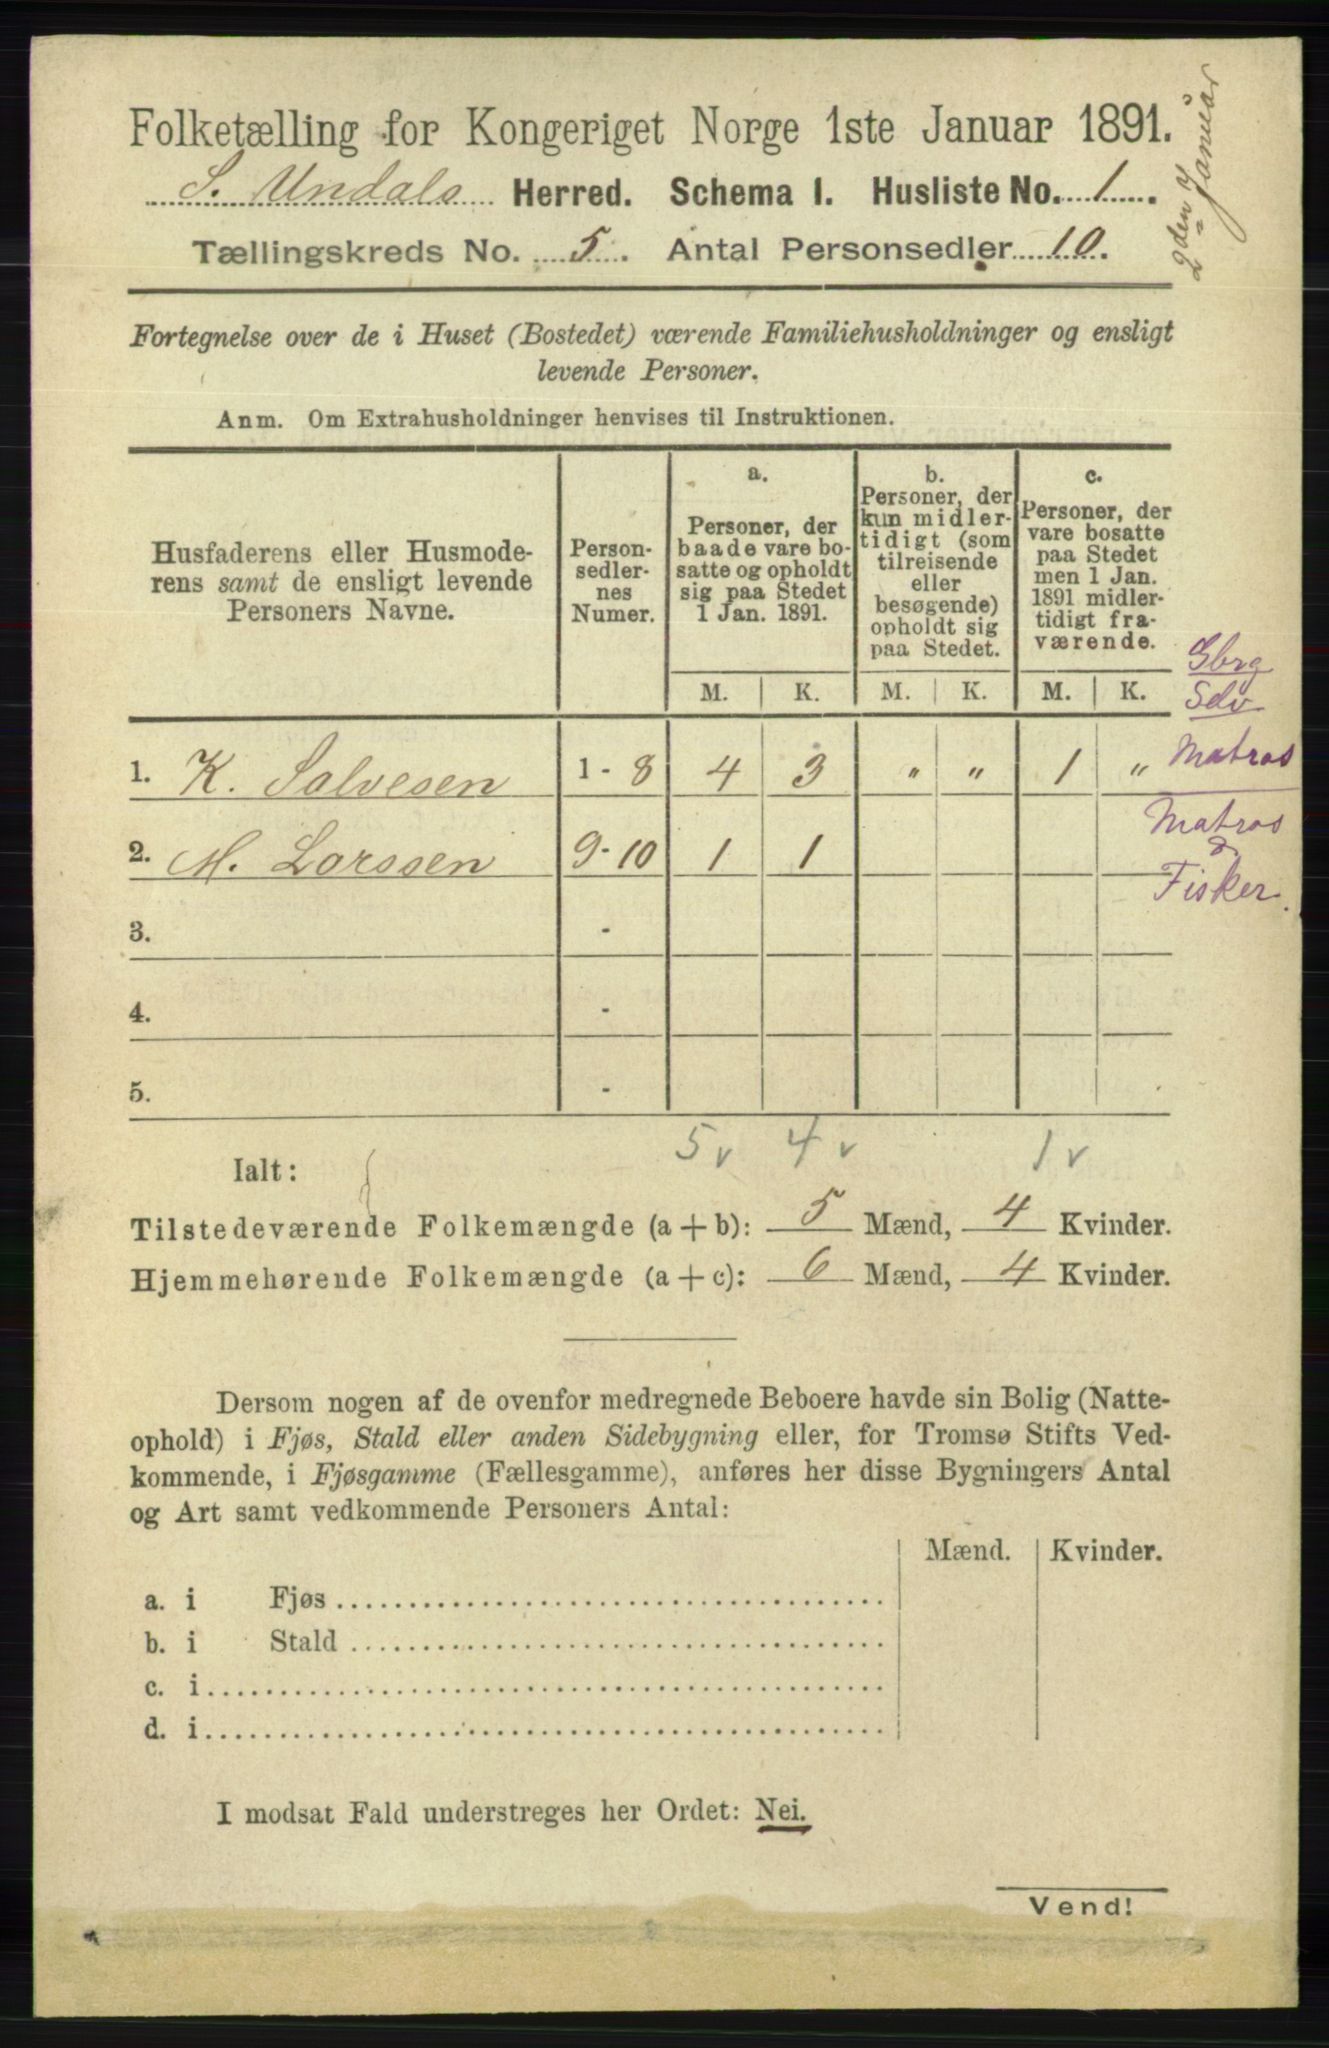 Folketælling for Kongeriget Norge 1ste Januar 1891.
S. Undals Herred. Schema I. Husliste No. 1.
Tællingskreds No. 5. Antal Personsedler 10.
2den Januar
Fortegnelse over de i Huset (Bostedet) værende Familiehusholdninger og ensligt
levende Personer.
Anm. Om Extrahusholdninger henvises til Instruktionen.
Husfaderens eller Husmode-
rens samt de ensligt levende
Personers Navne.
Person-
sedler-
nes
Numer.
a.
Personer, der
baade vare bo-
satte og opholdt
sig paa Stedet
1 Jan. 1891.
b.
Personer, der
kun midler-
tidigt (som
tilreisende
eller
besøgende)
opholdt sig
paa Stedet.
c.
Personer, der
vare bosatte
paa Stedet
men 1 Jan.
1891 midler-
tidigt fra-
værende.
M. K. M. K. M. K.
Gbrg
Selv
1. K. Salvesen 1 - 8 4 3 " " 1 " Matros
2. M. Larssen 9 - 10 1 1 Matros
&
Fisker.
3. -
4. -
5. -
5 v 4 v 1 v
Ialt:
Tilstedeværende Folkemængde (a + b): 5 Mænd, 4 Kvinder.
Hjemmehørende Folkemængde (a + c): 6 Mænd, 4 Kvinder.
Dersom nogen af de ovenfor medregnede Beboere havde sin Bolig (Natte-
ophold) i Fjøs, Stald eller anden Sidebygning eller, for Tromsø Stifts Ved-
kommende, i Fjøsgamme (Fællesgamme), anføres her disse Bygningers Antal
og Art samt vedkommende Personers Antal:
Mænd. Kvinder.
a. i Fjøs
b. i Stald
c. i
d. i
I modsat Fald understreges her Ordet: Nei.
Vend!